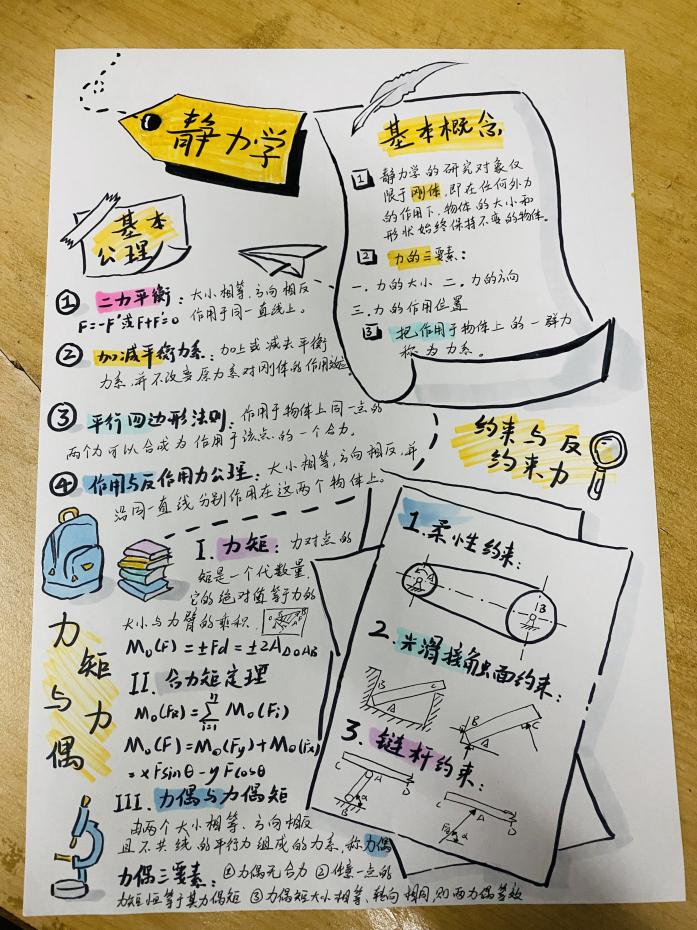 静力学
基本概念
1 静力学的研究对象仅
限于刚体，即在任何外力
的作用下，物体的大小和
形状始终保持不变的物体。
2 力的三要素：
一.力的大小 二.力的方向
三.力的作用位置
3 把作用于物体上的一群力
称为力系。
基本
公理
① 二力平衡：大小相等，方向相反
F=-F'或F+F'=0 作用于同一直线上。
② 加减平衡力系：加上或减去平衡
力系，并不改变原力系对刚体的作用效应
③ 平行四边形法则：作用于物体上同一点的
两个力可以合成为作用于该点的一个合力。
④ 作用与反作用力公理：大小相等，方向相反，并
沿同一直线分别作用在这两个物体上。
力矩与力偶
I.力矩：力对点的
矩是一个代数量，
它的绝对值等于力的
大小与力臂的乘积.
M₀(F)=±Fd=±2A△OAB
II.合力矩定理
M₀(FR)=∑ⁿᵢ₌₁ M₀(Fi)
M₀(F)=M₀(Fy)+M₀(Fx)
=xFsinθ-yFcosθ
III.力偶与力偶矩
由两个大小相等、方向相反
且不共线的平行力组成的力系，称力偶
力偶三要素：①力偶无合力 ②任意一点的
力矩恒等于其力偶矩 ③力偶矩大小相等、转向相同，则两力偶等效
约束与反
约束力
1.柔性约束：
A
B
2.光滑接触面约束：
B C
A
B C
A
3.链杆约束：
C D
A
B α
C D
A
FA α